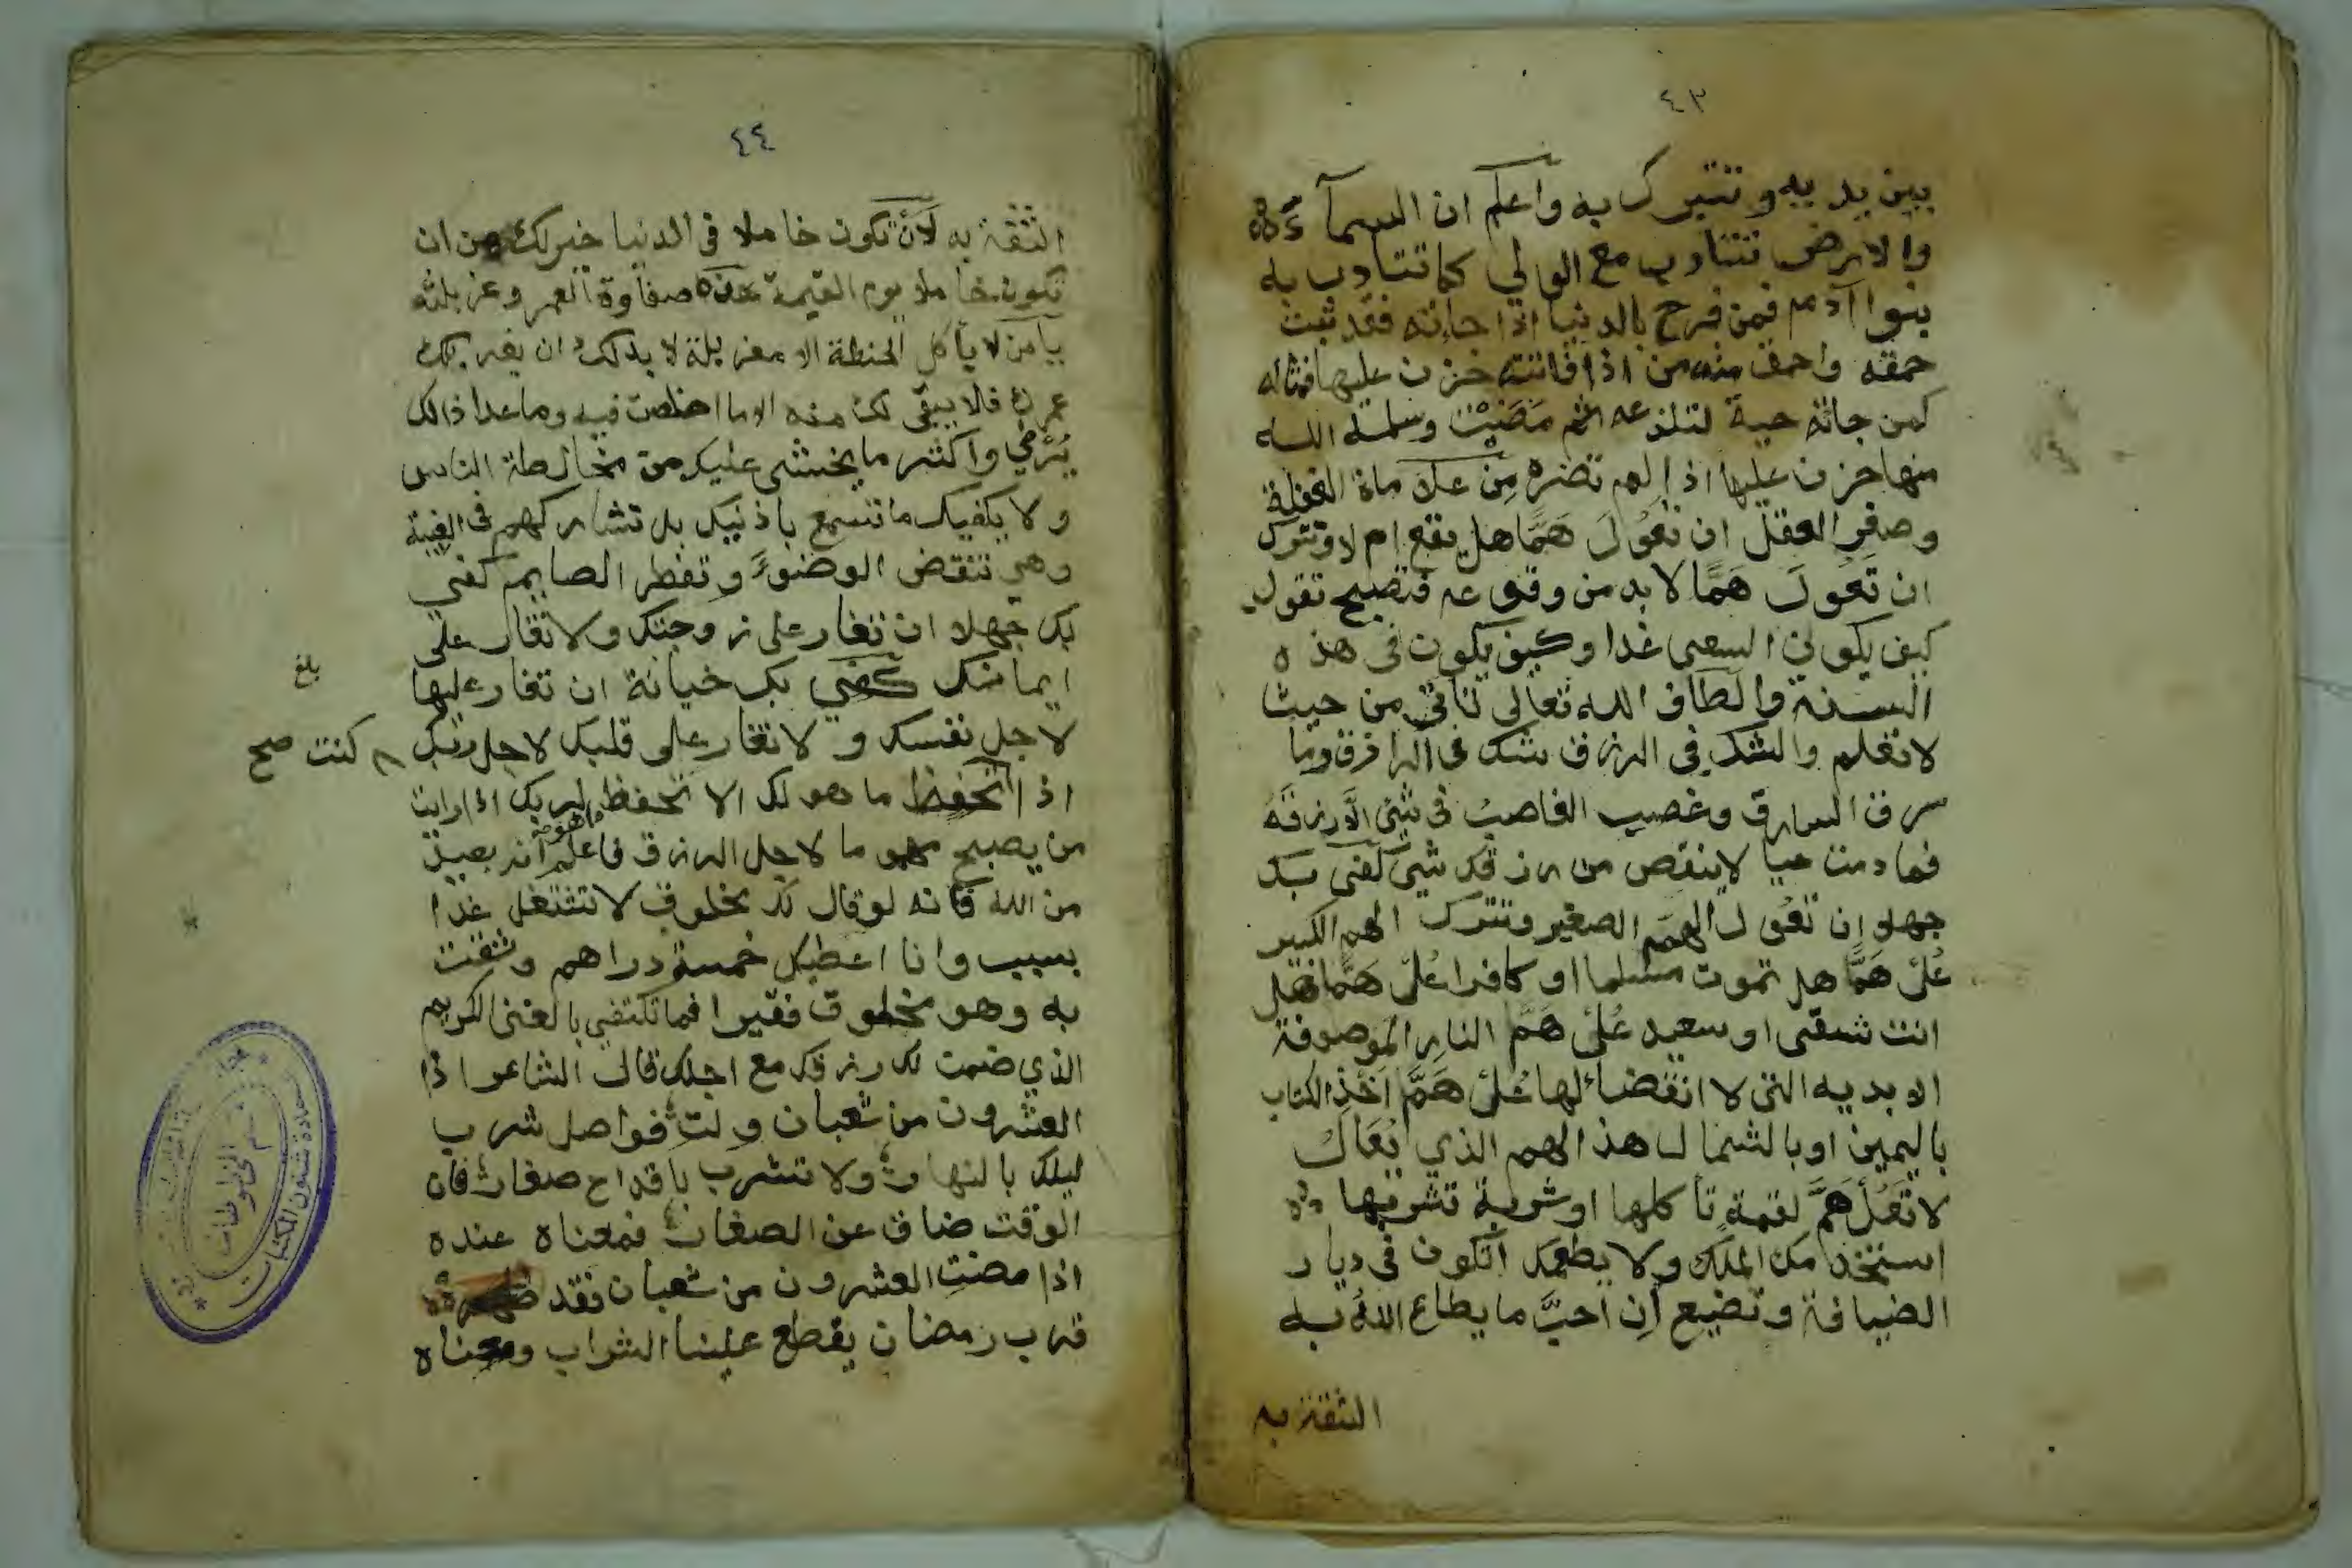 ٤٣
بين يديه وتتبرك به واعلم ان السمآء
والارض تتادب مع الولي كما تتادب به
بنوا آدم فمن فرح بالدنيا اذا جاءته فقد ثبت
حمقه واحمق منه من اذا فاتته حزن عليها فمثاله
كمن جائته حية لتلذعه ثم مَضَيْت وسلمه الله
منها حزن عليها اذ الم تضره مِن علامة الغفلة
وصغر العقل ان تعُولَ هَمًّا هل يقع ام لا وتترك
ان تَعُولَ هَمًّا لا بد من وقوعه فتصبح تقول
كيف يكون السعى غدا وكيف يكون فى هذه
السنة والطاف الله تعالى تاتى من حيث
لا تعلم والشك في الرزق شك فى الرازق وما
سرق السارق وغصب الغاصبُ فى شئ الا رزقَهُ
فما دمت حيا لا ينقص من رزقك شيئ كفى بك
جهلا ان تعُول الهمَّ الصغير وتترك الهم الكبير
عُلْ هَمًّا هل تموت مسلما او كافرا عُلْ هَمًّا هل
انت شقى او سعيد عُلْ هَمَّ النار الموصوفة
الابدية التى لا انقضاء لها عُلْ هَمَّ اَخْذِ الكتاب
باليمين او بالشمال هذا الهم الذي يُعَالُ
لا تَعُلْ هَمَّ لقمة تأكلها او شربة تشربها
ايستخدمك الملك ولا يطعمك اتكون فى ديار
الضيافة وتضيع اِن احبَّ ما يطاع اللهُ به
الثقة به
٤٤
الثقة به لَأَنْ تكون خاملا فى الدنيا خير لك من ان
تكون خاملا يوم القيمة هذه صفاوة العمر وغربلته
يا من لا يأكل الحنطة الا مغربلة لا بد لك ان يغربلك
عمرك فلا يبقى لك منه الا ما اخلصت فيه وما عدا ذالك
يُرْمي واكثر ما يخشى عليك من مخالطة الناس
ولا يكفيك ما تسمع باذنيك بل تشاركهم فى الغيبة
وهي تنقض الوضوء وتفطر الصايم كفي
بك جهلا ان تغار على زوجتك ولا تغار على
ايمانك كفي بك خيانة ان تغار عليها
لاجل نفسك ولا تغار على قلبك لاجل ربك
اذا تحفظ ما هو لك الا تحفظ ما هو لربك اذا رايت
من يصبح مهموما لاجل الرزق فاعلم انه بعيد
من الله فانه لو قال لك مخلوق لا تشتغل غدا
بسبب وانا اعطيك خمسة دراهم وثقت
به وهو مخلوق فقير افما تكتفي بالغنى الكريم
الذي ضمن لك رزقك مع اجلك قال الشاعر اذا
العشرون من شعبان ولت فواصل شرب
ليلك بالنهار ولا تشرب باقداح صغار فان
الوقت ضاق عن الصغار فمعناه عنده
اذا مضت العشرون من شعبان فقد
قرب رمضان يقطع علينا الشراب ومعناه
بلغ
كنت صح
قسم المخطوطات